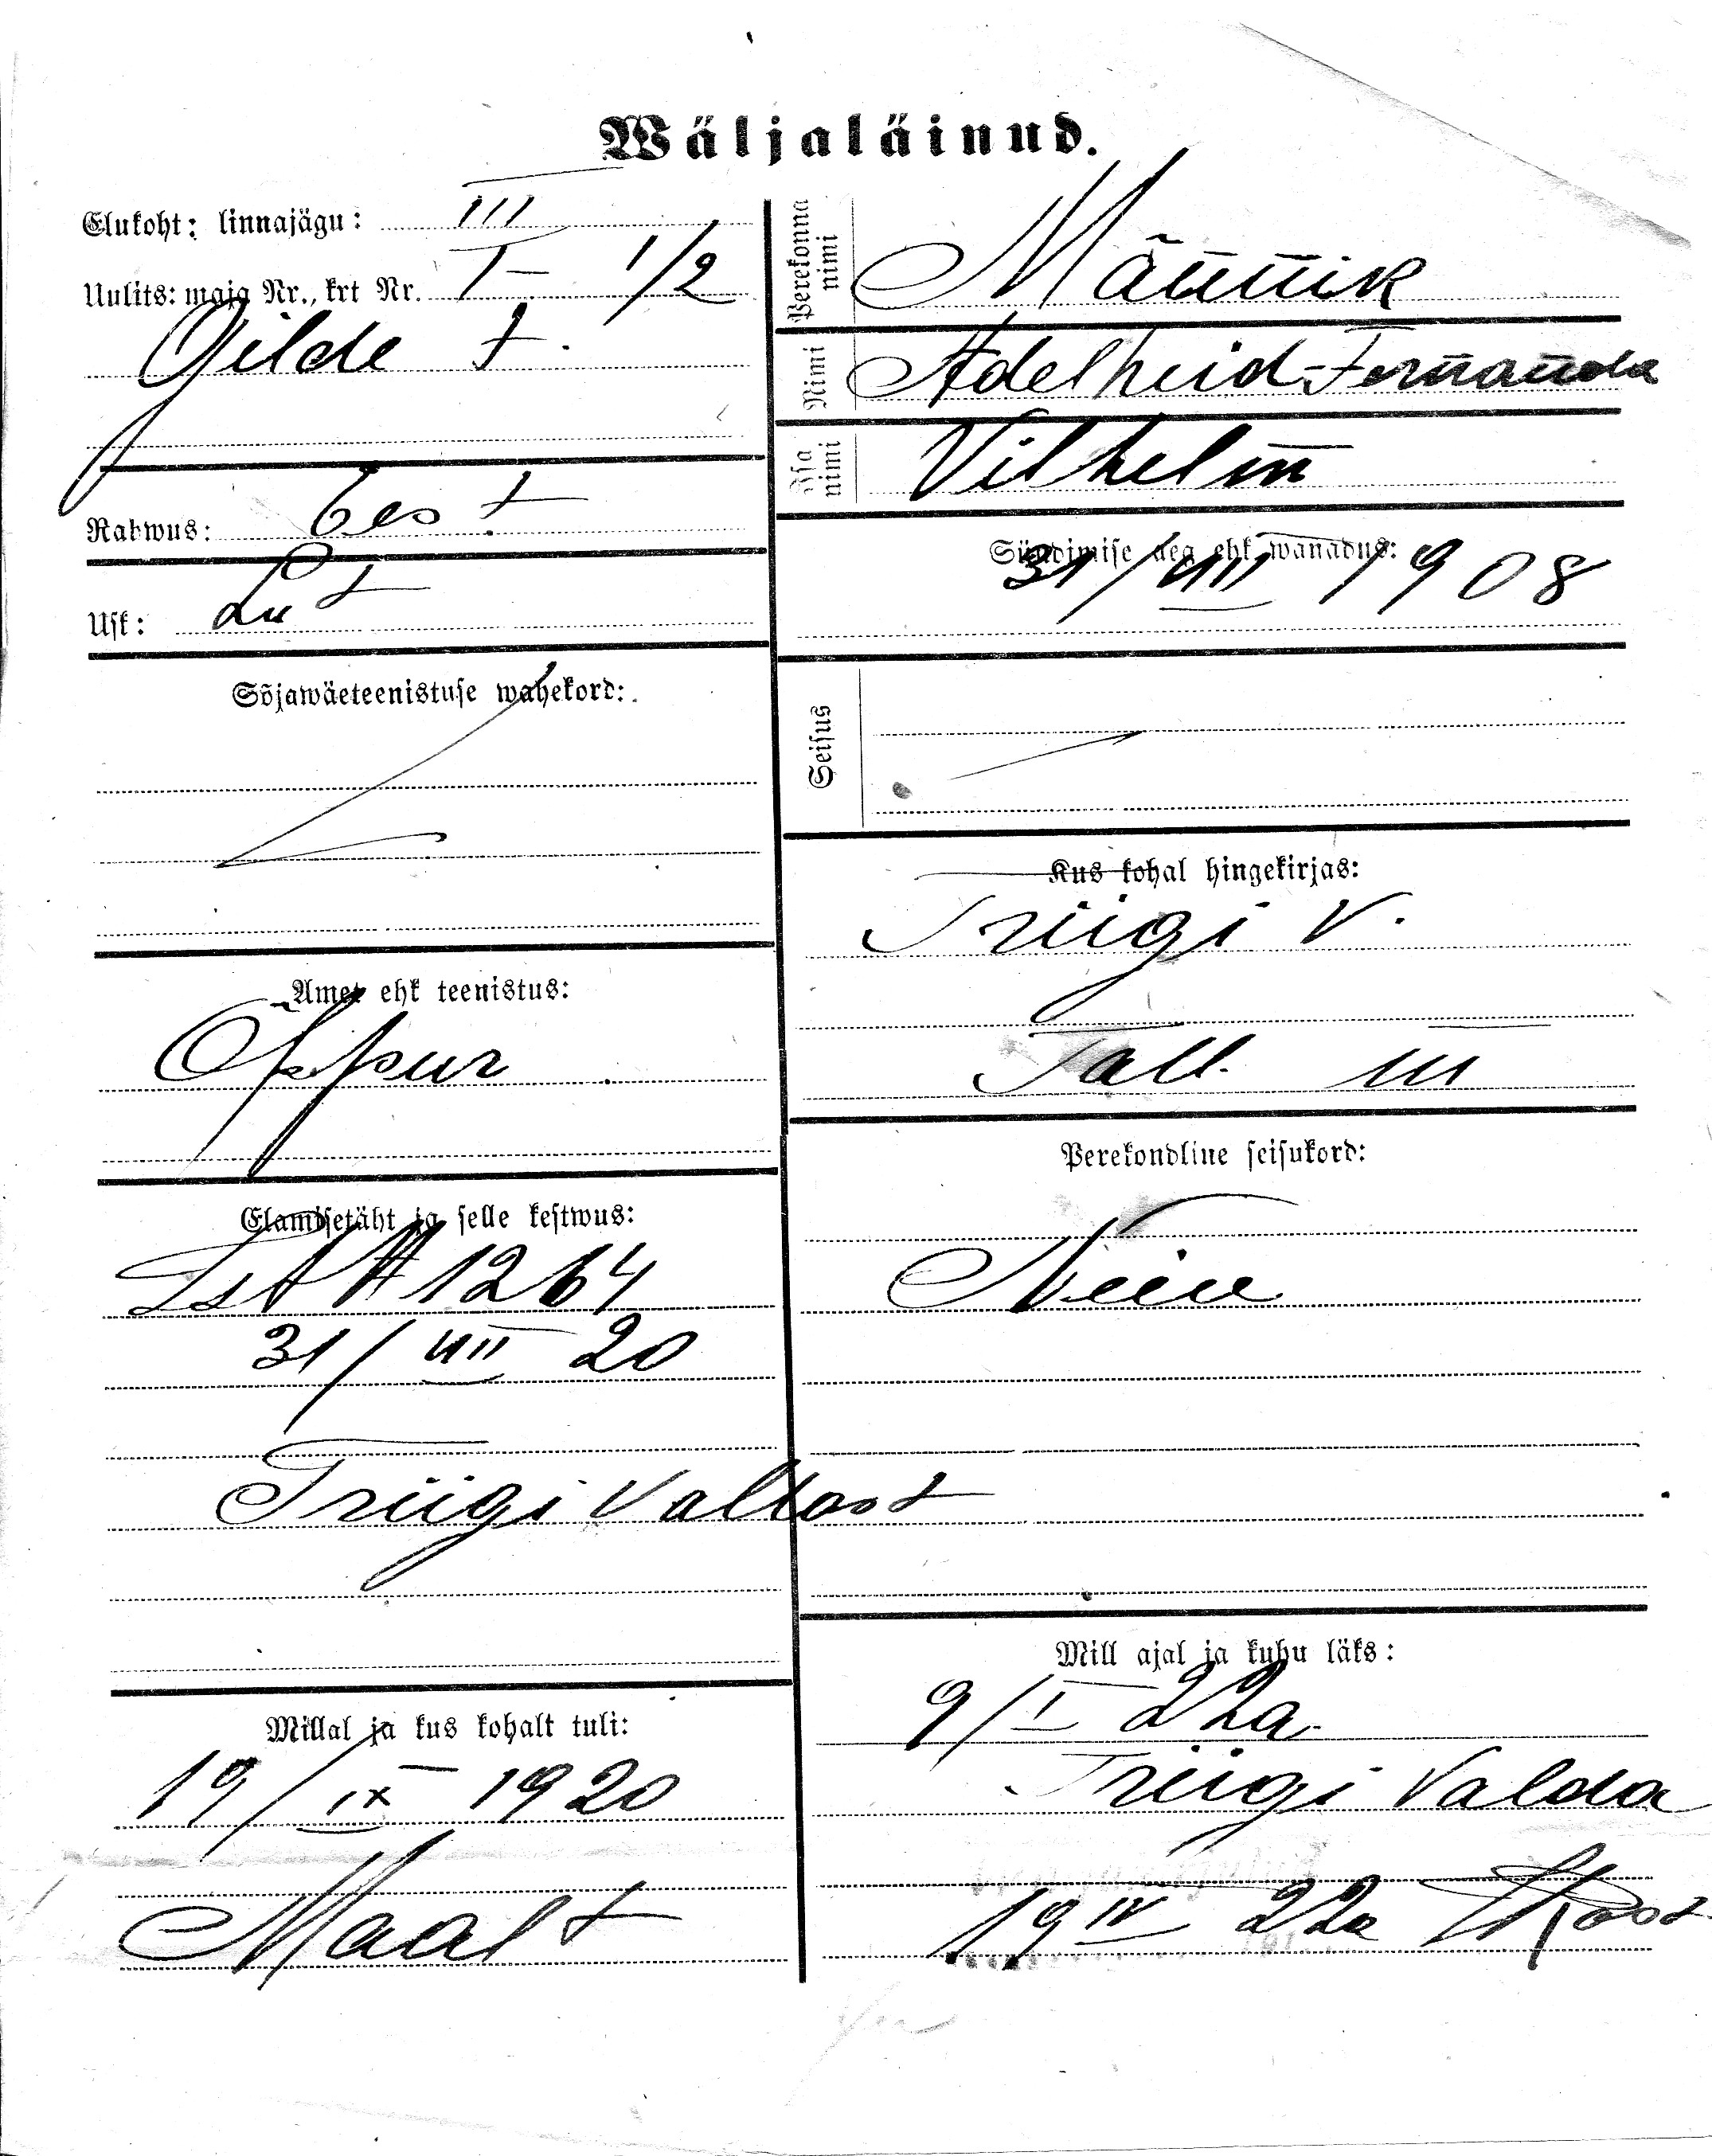 Wäljaläinud.
Elukoht: linnajägu: III
Uulits: maja Nr., krt Nr. T– 1/2
Gilde t.
Rahwus: Eest
Usk: Lut
Sõjawäeteenistuse wahekord:
Amet ehk teenistus:
Õppur
Elamisetäht ja selle kestwus:
Ist № 1264
31/VIII 20
Triigi Vallast
Millal ja kus kohalt tuli:
19/IX 1920
Maalt
Perekonna nimi Männik
Nimi Adelheid-Fernanda
Isa nimi Vilhelm
Sündimise aeg ehk wanadus:
31/VIII 1908
Seisus
Kus kohal hingekirjas:
Triigi V.
Tall. III
Perekondline seisukord:
Neiu
Mill ajal ja kuhu läks:
9/I 22a.
Triigi Valda
19 IV 22a